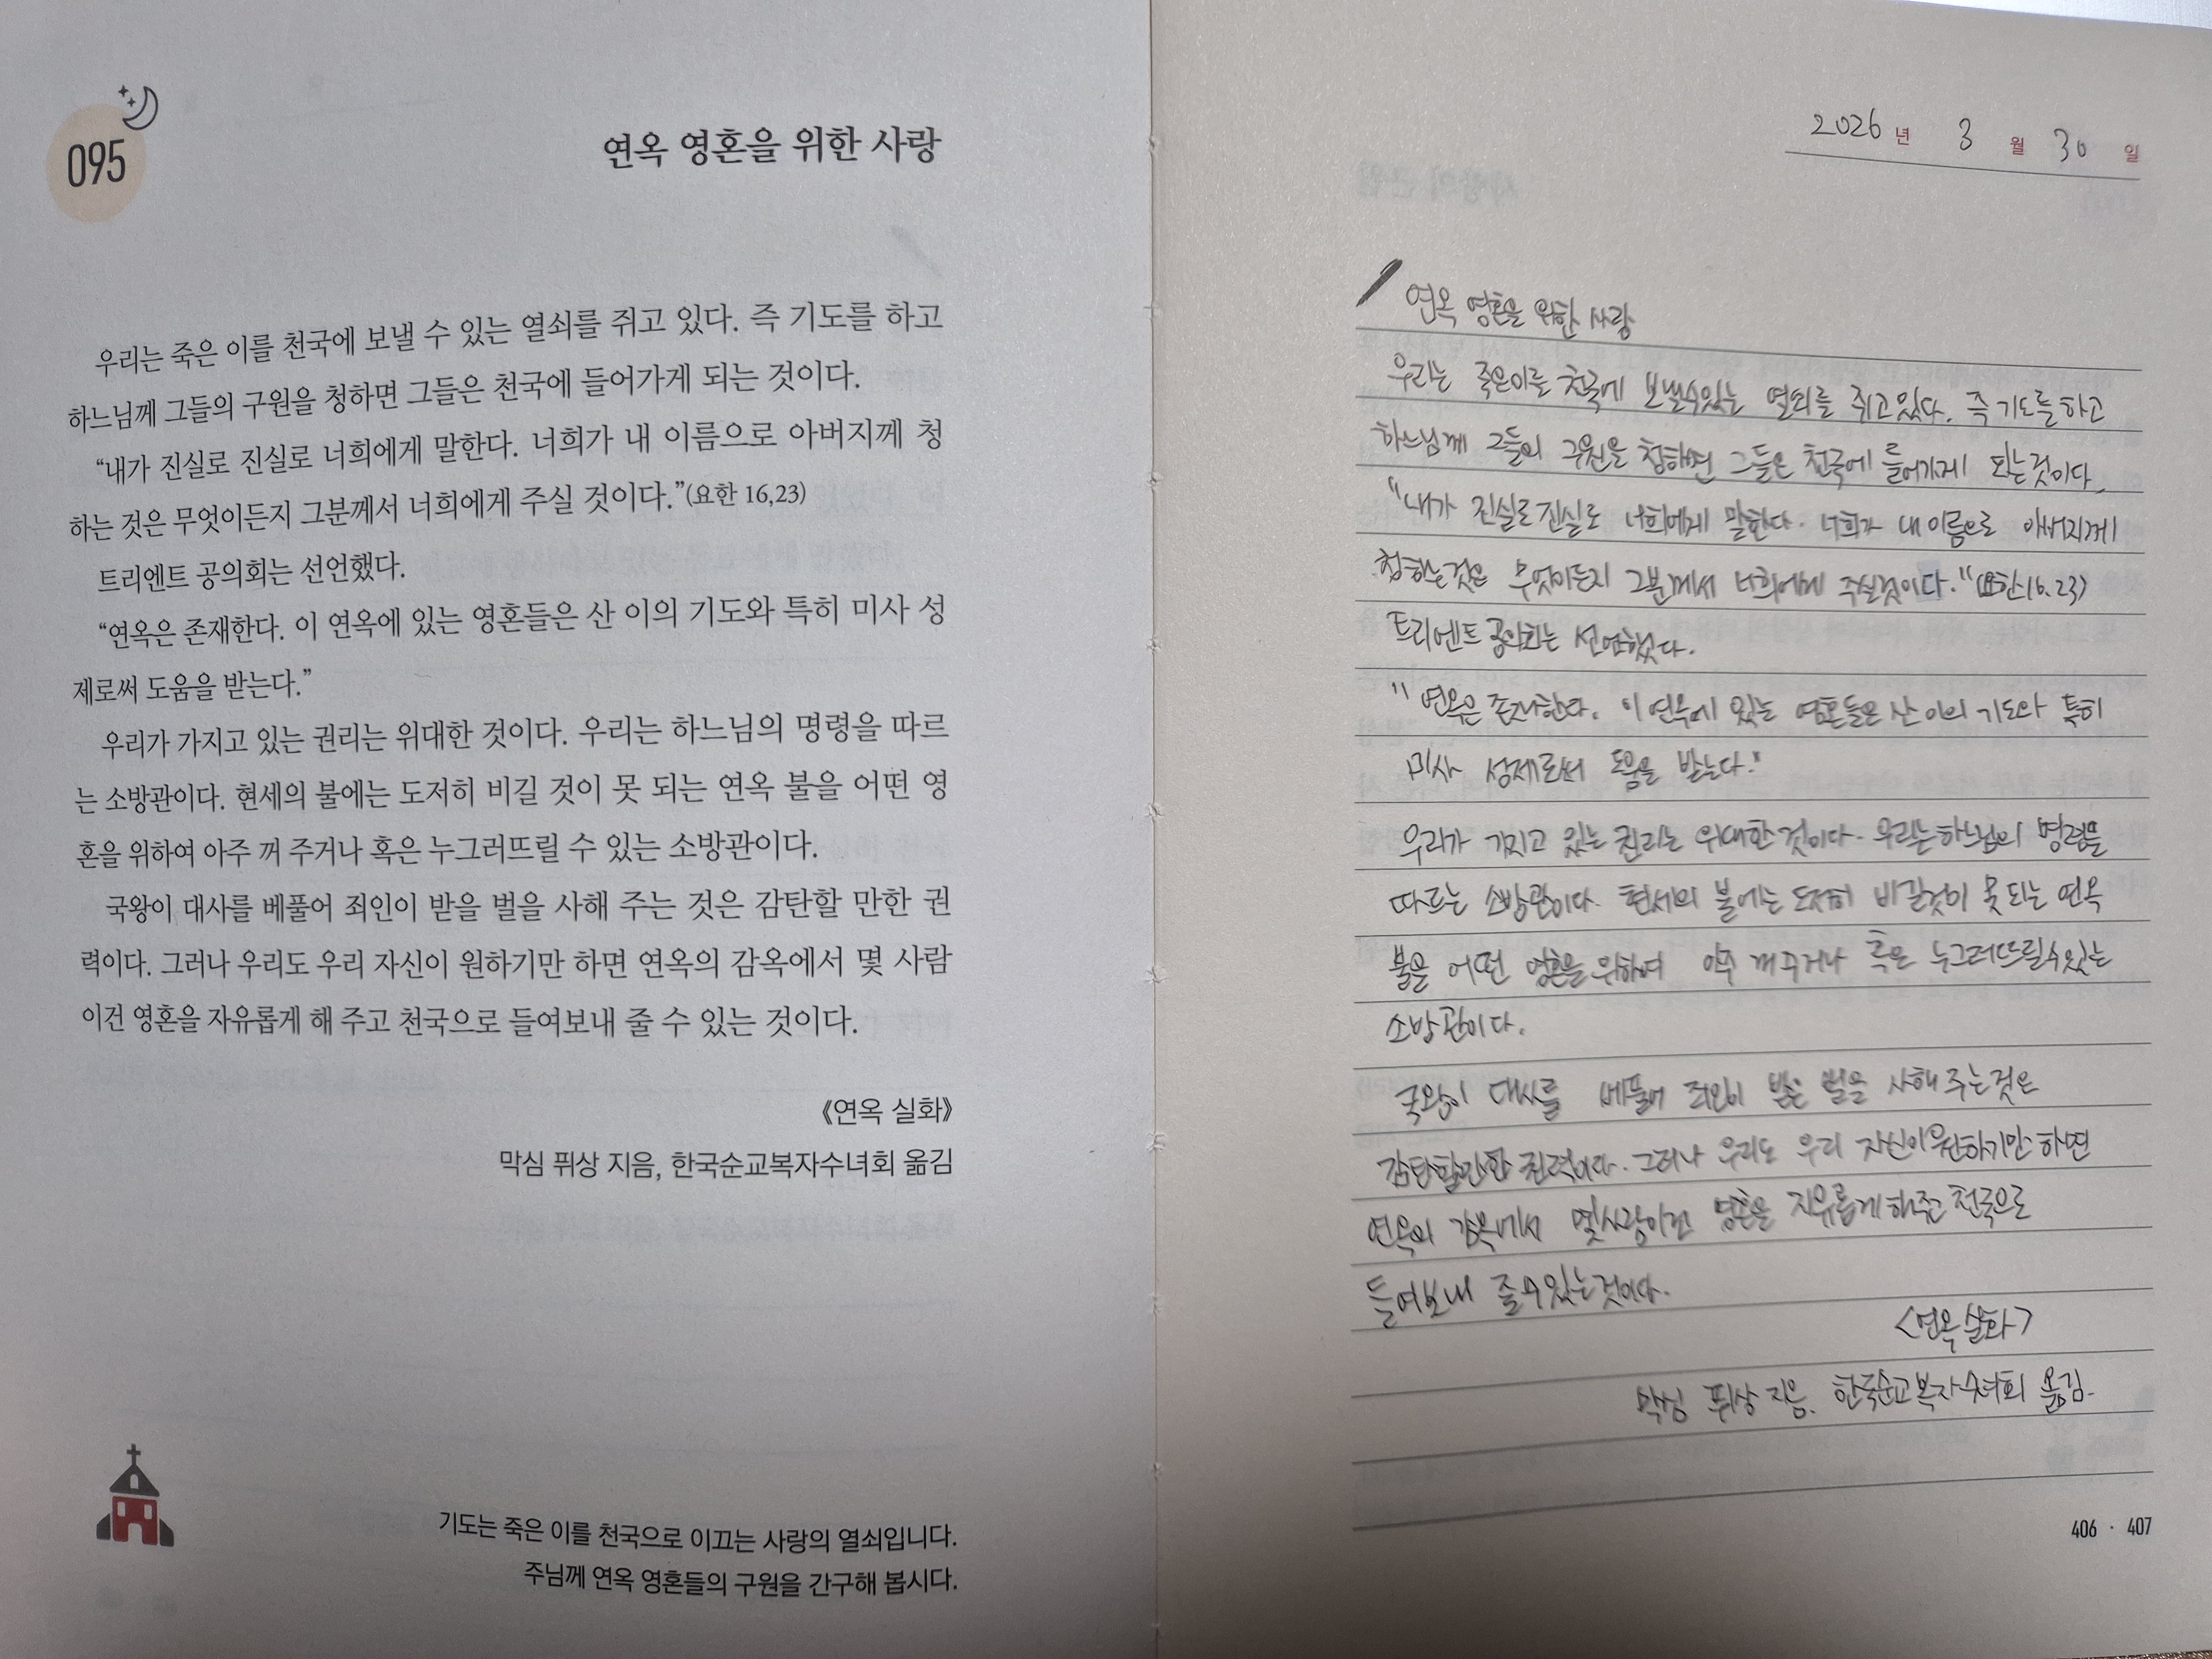 095
연옥 영혼을 위한 사랑
우리는 죽은 이를 천국에 보낼 수 있는 열쇠를 쥐고 있다. 즉 기도를 하고
하느님께 그들의 구원을 청하면 그들은 천국에 들어가게 되는 것이다.
“내가 진실로 진실로 너희에게 말한다. 너희가 내 이름으로 아버지께 청
하는 것은 무엇이든지 그분께서 너희에게 주실 것이다.”(요한 16,23)
트리엔트 공의회는 선언했다.
“연옥은 존재한다. 이 연옥에 있는 영혼들은 산 이의 기도와 특히 미사 성
제로써 도움을 받는다.”
우리가 가지고 있는 권리는 위대한 것이다. 우리는 하느님의 명령을 따르
는 소방관이다. 현세의 불에는 도저히 비길 것이 못 되는 연옥 불을 어떤 영
혼을 위하여 아주 꺼 주거나 혹은 누그러뜨릴 수 있는 소방관이다.
국왕이 대사를 베풀어 죄인이 받을 벌을 사해 주는 것은 감탄할 만한 권
력이다. 그러나 우리도 우리 자신이 원하기만 하면 연옥의 감옥에서 몇 사람
이건 영혼을 자유롭게 해 주고 천국으로 들여보내 줄 수 있는 것이다.
《연옥 실화》
막심 퓌상 지음, 한국순교복자수녀회 옮김
기도는 죽은 이를 천국으로 이끄는 사랑의 열쇠입니다.
주님께 연옥 영혼들의 구원을 간구해 봅시다.
2026 년 3 월 30 일
연옥 영혼을 위한 사랑
우리는 죽은이를 천국에 보낼수있는 열쇠를 쥐고있다. 즉 기도를 하고
하느님께 그들의 구원을 청하면 그들은 천국에 들어가게 되는것이다.
"내가 진실로 진실로 너희에게 말한다. 너희가 내 이름으로 아버지께
청하는것은 무엇이든지 그분께서 너희에게 주실것이다." (요한16.23)
트리엔트 공의회는 선언했다.
"연옥은 존재한다. 이 연옥에 있는 영혼들은 산 이의 기도와 특히
미사 성제로써 도움을 받는다."
우리가 가지고 있는 권리는 위대한 것이다. 우리는하느님의 명령을
따르는 소방관이다. 현세의 불에는 도저히 비길것이 못 되는 연옥
불을 어떤 영혼을 위하여 아주 꺼주거나 혹은 누그러뜨릴수있는
소방관이다.
국왕이 대사를 베풀어 죄인이 받은 벌을 사해 주는것은
감탄할만한 권력이다. 그러나 우리도 우리 자신이원하기만 하면
연옥의 감옥에서 몇사람이건 영혼을 자유롭게 해주고 천국으로
들여보내 줄수있는것이다.
<연옥실화>
막심 퓌상 지음. 한국순교복자수녀회 옮김.
406 · 407